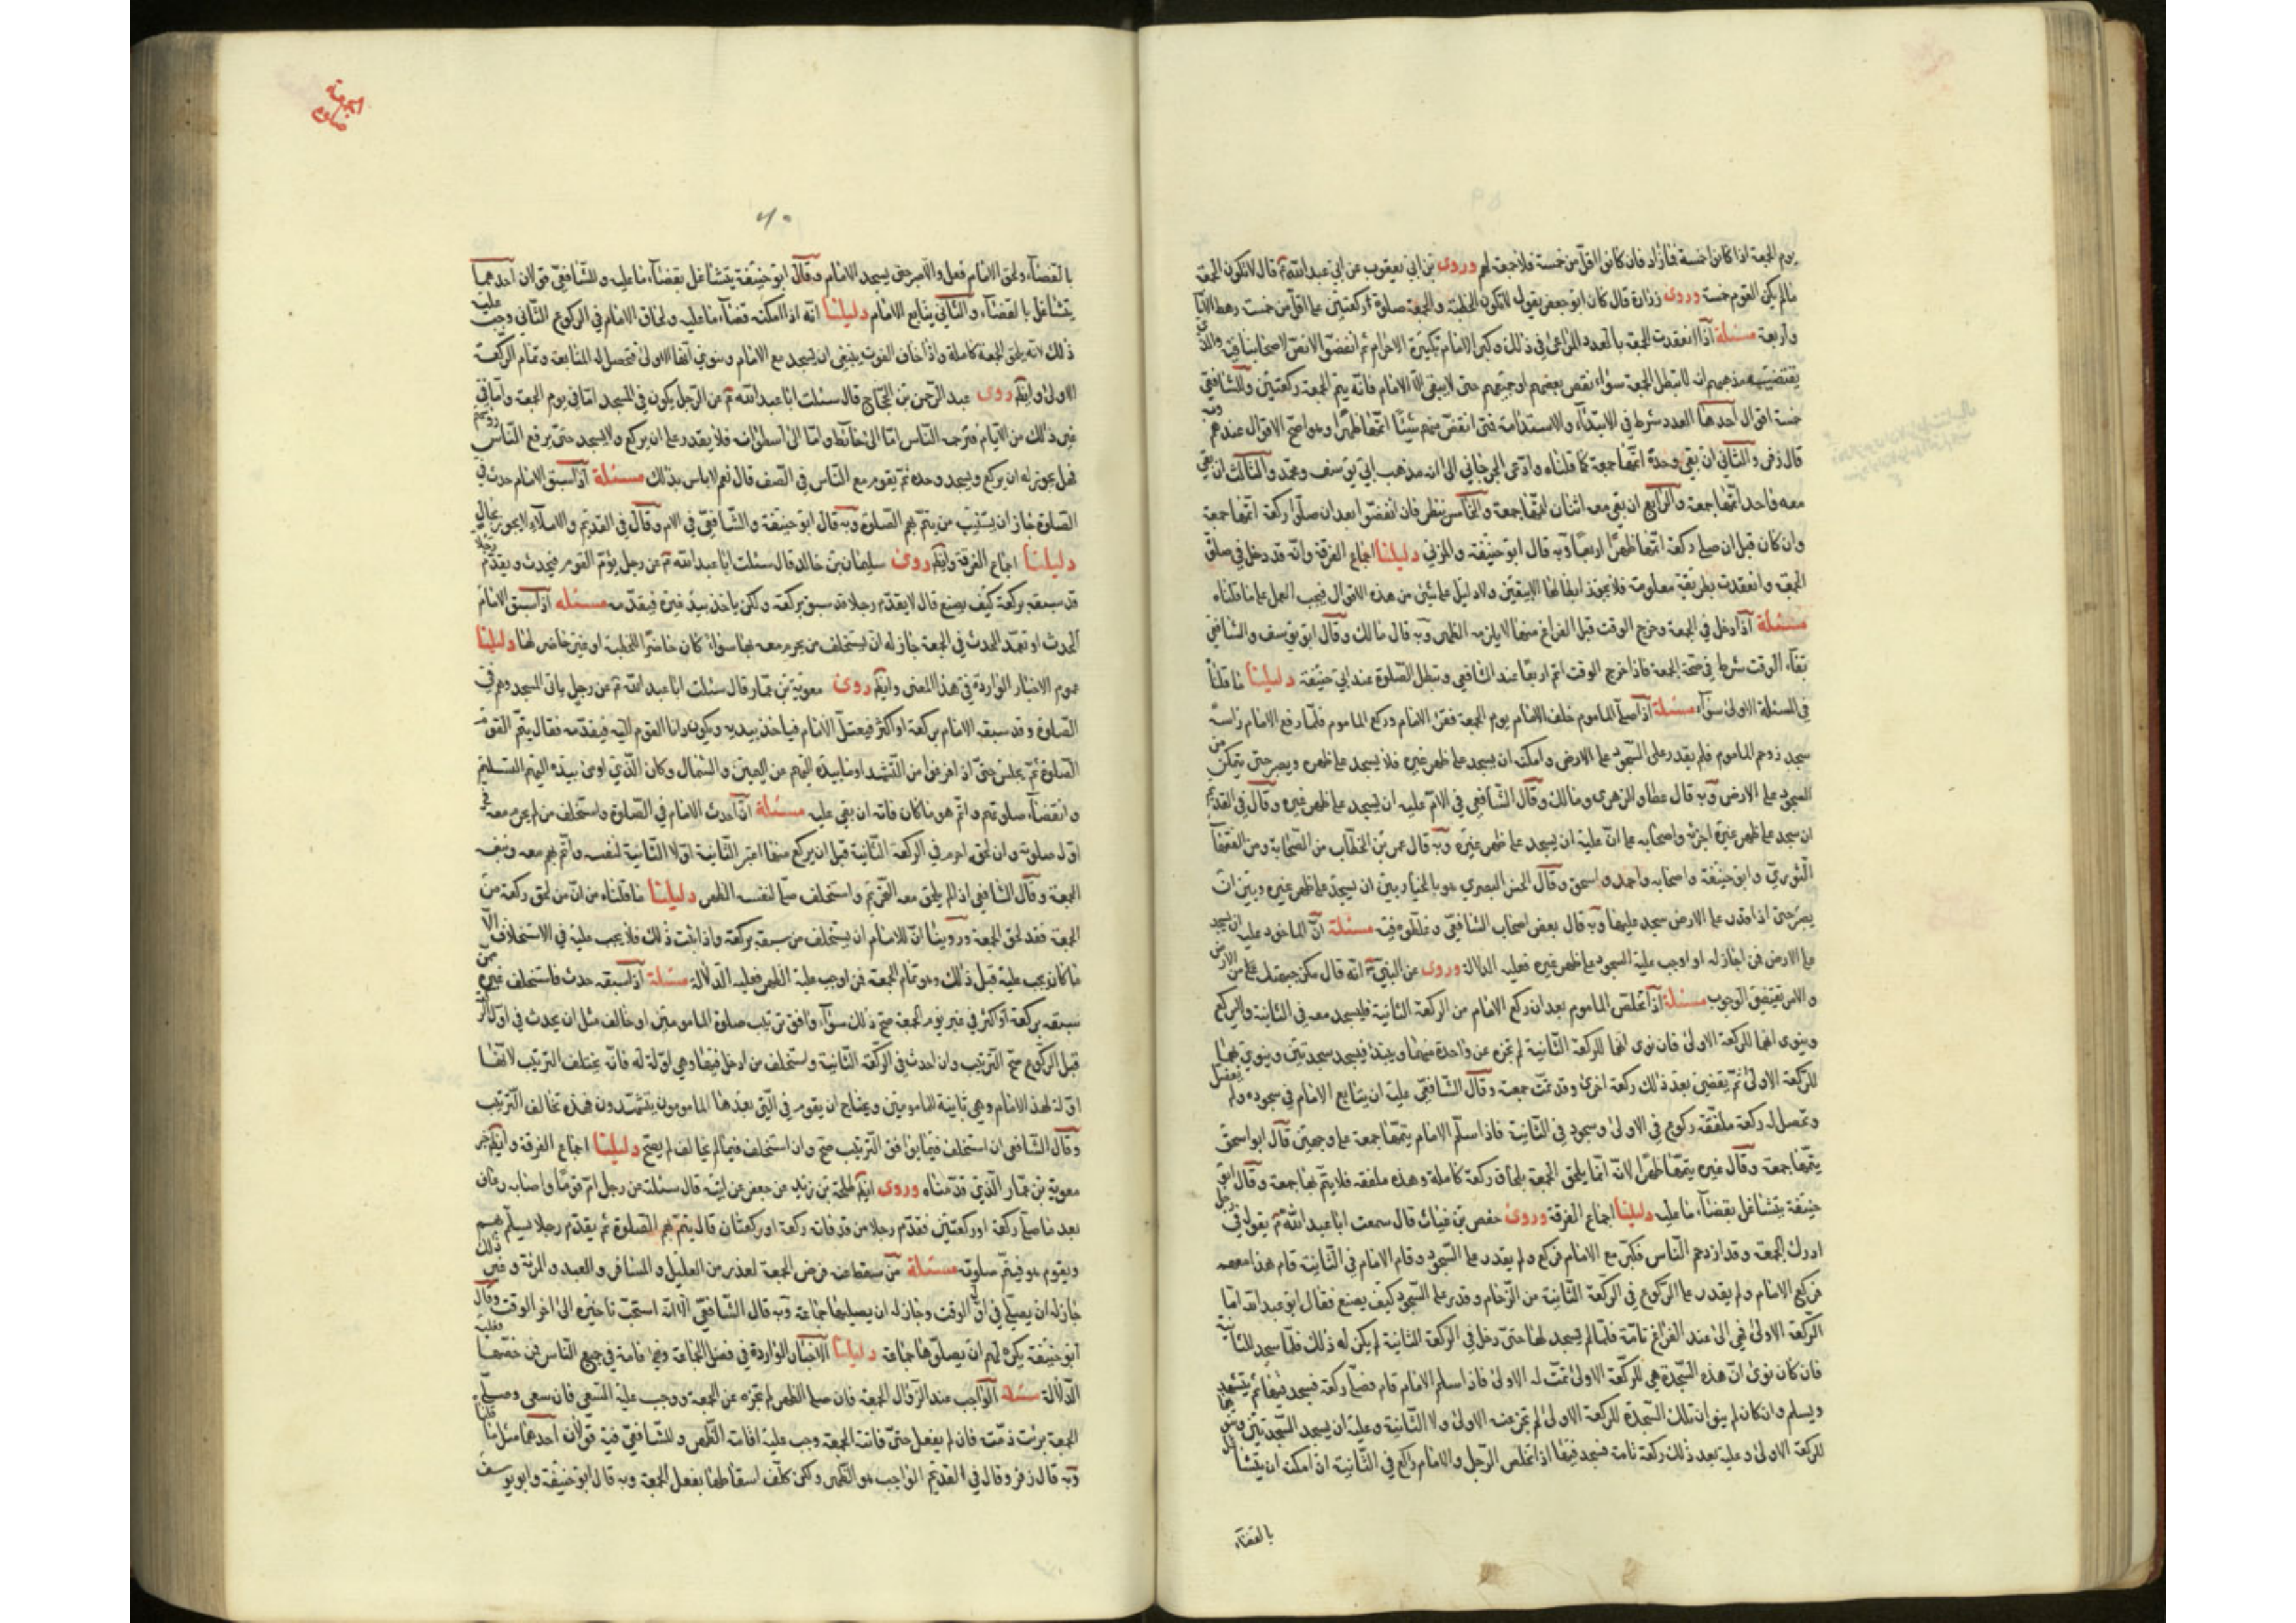 يوم الجمعة اذا كانوا خمسة فما زاد فان كانوا اقل من خمسة فلا جمعة لهم وروى بن ابي يعقوب عن ابي عبد الله ع قال لا تكون الجمعة
مالم يكن القوم خمسة وروى زرارة قال كان ابو جعفر يقول لا تكون الخطبة والجمعة وصلوة ركعتين على اقل من خمسة رهط الامام
واربعة مسئلة اذا انعقدت الجمعة بالعدد المراعى في ذلك وكبر الامام تكبيرة الاحرام ثم انفضوا لا نص لاصحابنا فيه والذي
يقتضيه مذهبهم انه لا تبطل الجمعة سواء نقص بعضهم او جميعهم حتى لا يبقى الا الامام فانه يتم الجمعة ركعتين وللشافعي
خمسة اقوال احدها العدد شرط في الابتداء والاستدامة فمتى انفض منهم شيئا اتمها ظهرا وهو اصح الاقوال عندهم وبه
قال زفر والثاني ان بقي وحده اتمها جمعة كما قلناه وادعى الجرجاني ان مذهب ابي يوسف ومحمد والثالث ان بقي
معه واحد اتمها جمعة والرابع ان بقي معه اثنان اتمها جمعة والخامس ينظر فان انفضوا بعد ان صلوا ركعة اتمها جمعة
وان كان قبل ان صلى ركعة اتمها ظهرا اربعا وبه قال ابو حنيفة والمزني دليلنا اجماع الفرقة وانه قد دخل في صلوة
الجمعة وانعقدت بطريقة معلومة فلا يجوز ابطالها الا بيقين ولا دليل على شيء من هذه الاقوال فيجب العمل على ما قلناه
مسئلة اذا دخل في الجمعة وخرج الوقت قبل الفراغ منها لا يلزمه الظهر وبه قال مالك وقال ابو يوسف والشافعي
بقاء الوقت شرط في صحة الجمعة فاذا خرج الوقت اتم اربعا عند الشافعي وتبطل الصلوة عند ابي حنيفة دليلنا ما قلنا
في المسئلة الاولى سواء مسئلة اذا صلى الماموم خلف الامام يوم الجمعة فقرا الامام وركع الماموم فلما رفع الامام راسه
سجد زوحم الماموم فلم يقدر على السجود على الارض وامكنه ان يسجد على ظهر غيره فلا يسجد على ظهره ويصبر حتى يتمكن من
السجود على الارض وبه قال عطا والزهري ومالك وقال الشافعي في الام عليه ان يسجد على ظهر غيره وقال في القديم
ان سجد على ظهر غيره اجزاه واصحابه على ان عليه ان يسجد على ظهر غيره وبه قال عمر بن الخطاب من الصحابة ومن الفقهاء
الثوري وابو حنيفة واصحابه واحمد واسحق وقال الحسن البصري هو بالخيار بين ان يسجد على ظهر غيره وبين ان
يصبر حتى اذا قدر على الارض سجد عليها وبه قال بعض اصحاب الشافعي وغلطوه فيه مسئلة ان الماخوذ عليه ان يسجد
على الارض فمن اجاز له او اوجب عليه السجود على ظهر غيره فعليه الدلالة وروى عن النبي انه قال مكن جبهتك من الارض
والامر يقتضي الوجوب مسئلة اذا تخلص الماموم بعد ان ركع الامام من الركعة الثانية فليسجد معه في الثانية ولا يركع
وينوي انهما للركعة الاولى فان نوى انهما للركعة الثانية لم تجزه عن واحدة منهما ويبتدئ فيسجد سجدتين وينوي بهما
للركعة الاولى ثم يقضي بعد ذلك ركعة اخرى وقد تمت جمعته وقال الشافعي عليه ان يتابع الامام في سجوده ولم
وتحصل له ركعة ملفقة ركوع في الاولى وسجود في الثانية فاذا سلم الامام يتمها جمعة على وجهين قال ابو اسحق
يتمها جمعة وقال غيره يتمها ظهرا لانه انما يلحق الجمعة بلحاق ركعة كاملة وهذه ملفقة فلا يتم بها جمعة وقال ابو
حنيفة يتشاغل بقضاء ما عليه دليلنا اجماع الفرقة وروى حفص بن غياث قال سمعت ابا عبد الله ع يقول في رجل
ادرك الجمعة وقد ازدحم الناس فكبر مع الامام فركع ولم يقدر على السجود وقام الامام في الثانية قام هذا معه
فركع الامام ولم يقدر على الركوع في الركعة الثانية من الزحام وقدر على السجود كيف يصنع فقال ابو عبد الله اما
الركعة الاولى فهي الى عند الفراغ تامة فلما لم يسجد لها حتى دخل في الركعة الثانية لم يكن له ذلك فلما سجد للثانية
فان كان نوى ان هذه السجدة هي للركعة الاولى تمت له الاولى فاذا سلم الامام قام فصلى ركعة فيسجد فيها ثم يتشهد
ويسلم وان كان لم ينو ان تلك السجدة للركعة الاولى لم تجز عنه الاولى ولا الثانية وعليه ان يسجد السجدتين وينوي بهما
للركعة الاولى وعليه بعد ذلك ركعة تامة فيسجد فيها اذا تخلص الرجل والامام راكع في الثانية ان امكنه ان يتشاغل
بالقضاء
الجمعة
٦٠
بالقضاء ولحق الامام فعل والا صبر حتى يسجد الامام وقال ابو حنيفة يتشاغل بقضاء ما عليه وللشافعي قولان احدهما
يتشاغل بالقضاء والثاني يتابع الامام دليلنا انه اذا امكنه قضاء ما عليه ولحاق الامام في الركوع الثاني وجب عليه
ذلك لانه يلحق الجمعة كاملة واذا خاف الفوت ينبغي ان يسجد مع الامام وينوي انها الاولى فتحصل له المتابعة وتمام الركعة
الاولى وايضا روى عبد الرحمن بن الحجاج قال سئلت ابا عبد الله ع عن الرجل يكون في المسجد اما في يوم الجمعة واما في
غير ذلك من الايام فتزحمه الناس اما الى حائط واما الى اسطوانة فلا يقدر على ان يركع ولا يسجد حتى يرفع الناس رؤسهم
فهل يجوز له ان يركع ويسجد وحده ثم يقوم مع الناس في الصف قال نعم لا باس بذلك مسئلة اذا سبق الامام حدث في
الصلوة جاز ان يستنيب من يتم بهم الصلوة وبه قال ابو حنيفة والشافعي في الام وقال في القديم والاملاء لا يجوز بحال
دليلنا اجماع الفرقة وايضا روى سليمان بن خالد قال سئلت ابا عبد الله ع عن رجل يؤم القوم فيحدث ويقدم رجلا
قد سبقه بركعة كيف يصنع قال لا يقدم رجلا قد سبق بركعة ولكن ياخذ بيد غيره فيقدمه مسئله اذا سبق الامام
الحدث او تعمد الحدث في الجمعة جاز له ان يستخلف من يحرم معه بها سواء كان حاضرا الخطبة او غير حاضر لها دليلنا
عموم الاخبار الواردة في هذا المعنى وايضا روى معوية بن عمار قال سئلت ابا عبد الله ع عن رجل ياتي المسجد وهم في
الصلوة وقد سبقه الامام بركعة او اكثر فيعتل الامام فياخذ بيده ويكون ادنا القوم اليه فيقدمه فقال يتم القوم
الصلوة ثم يجلس حتى اذا فرغوا من التشهد اومأ بيده اليهم عن اليمين والشمال وكان الذي اومى بيده اليهم التسليم
وانقضاء صلوتهم واتم هو ما كان فاته ان بقي عليه مسئلة ان احدث الامام في الصلوة واستخلف من لم يحرم معه في
اول صلوته وان لحق احرم في الركعة الثانية قبل ان يركع منها اعتبر الثانية اولا الثانية لنفسه واتم بهم معه
الجمعة وقال الشافعي اذا لم يلحق معه التحريم واستخلف صلى لنفسه الظهر دليلنا ما قلناه من ان من لحق ركعة من
الجمعة فقد لحق الجمعة وروينا ان للامام ان يستخلف من سبقه بركعة واذا ثبت ذلك فلا يجب عليه في الاستخلاف الا
ما كان يجب عليه قبل ذلك وهو تمام الجمعة فمن اوجب عليه الظهر فعليه الدلالة مسئلة اذا سبقه حدث فاستخلف غيره ممن
سبقه بركعة او اكثر في غير يوم الجمعة صح ذلك سواء وافق ترتيب صلوة المامومين او خالف مثل ان يحدث في اول
قبل الركوع صح الترتيب وان احدث في الركعة الثانية واستخلف من ادخل فيها وهي اولة له فانه يختلف الترتيب لانها
اولة لهذا الامام وهي ثانية للمامومين ويحتاج ان يقوم في التي بعدها المامومون يتشهدون فهذه تخالف الترتيب
وقال الشافعي ان استخلف فيما يوافق الترتيب صح وان استخلف فيما يخالف لم يصح دليلنا اجماع الفرقة وايضا خبر
معوية بن عمار الذي قدمناه وروى ايضا طلحة بن زيد عن جعفر عن ابيه قال سئلته عن رجل ام قوما واصابه رعاف
بعد ما صلى ركعة او ركعتين فقدم رجلا من قد فاته ركعة او ركعتان قال يتم بهم الصلوة ثم يقدم رجلا يسلم بهم
ويقوم هو فيتم صلوته مسئلة من سقط عنه فرض الجمعة لعذر من العليل والمسافر والعبد والمرئة وغير ذلك
جاز له ان يصلي في اول الوقت وجاز له ان يصليها جماعة وبه قال الشافعي الا انه استحب تاخيره الى اخر الوقت وقال
ابو حنيفة يكره لهم ان يصلوها جماعة دليلنا الاخبار الواردة في فضل الجماعة وهي عامة في جميع الناس فمن خصها فعليه
الدلالة مسئلة الواجب عند الزوال الجمعة فان صلى الظهر لم تجزه عن الجمعة ووجب عليه السعي فان سعى وصلى
الجمعة برئت ذمته فان لم يفعل حتى فاتته الجمعة وجب عليه اقامة الظهر وللشافعي فيه قولان احدهما مثل ما قلنا
وبه قال زفر وقال في القديم الواجب هو الظهر ولكن كلف اسقاطها بفعل الجمعة وبه قال ابو حنيفة وابو يوسف